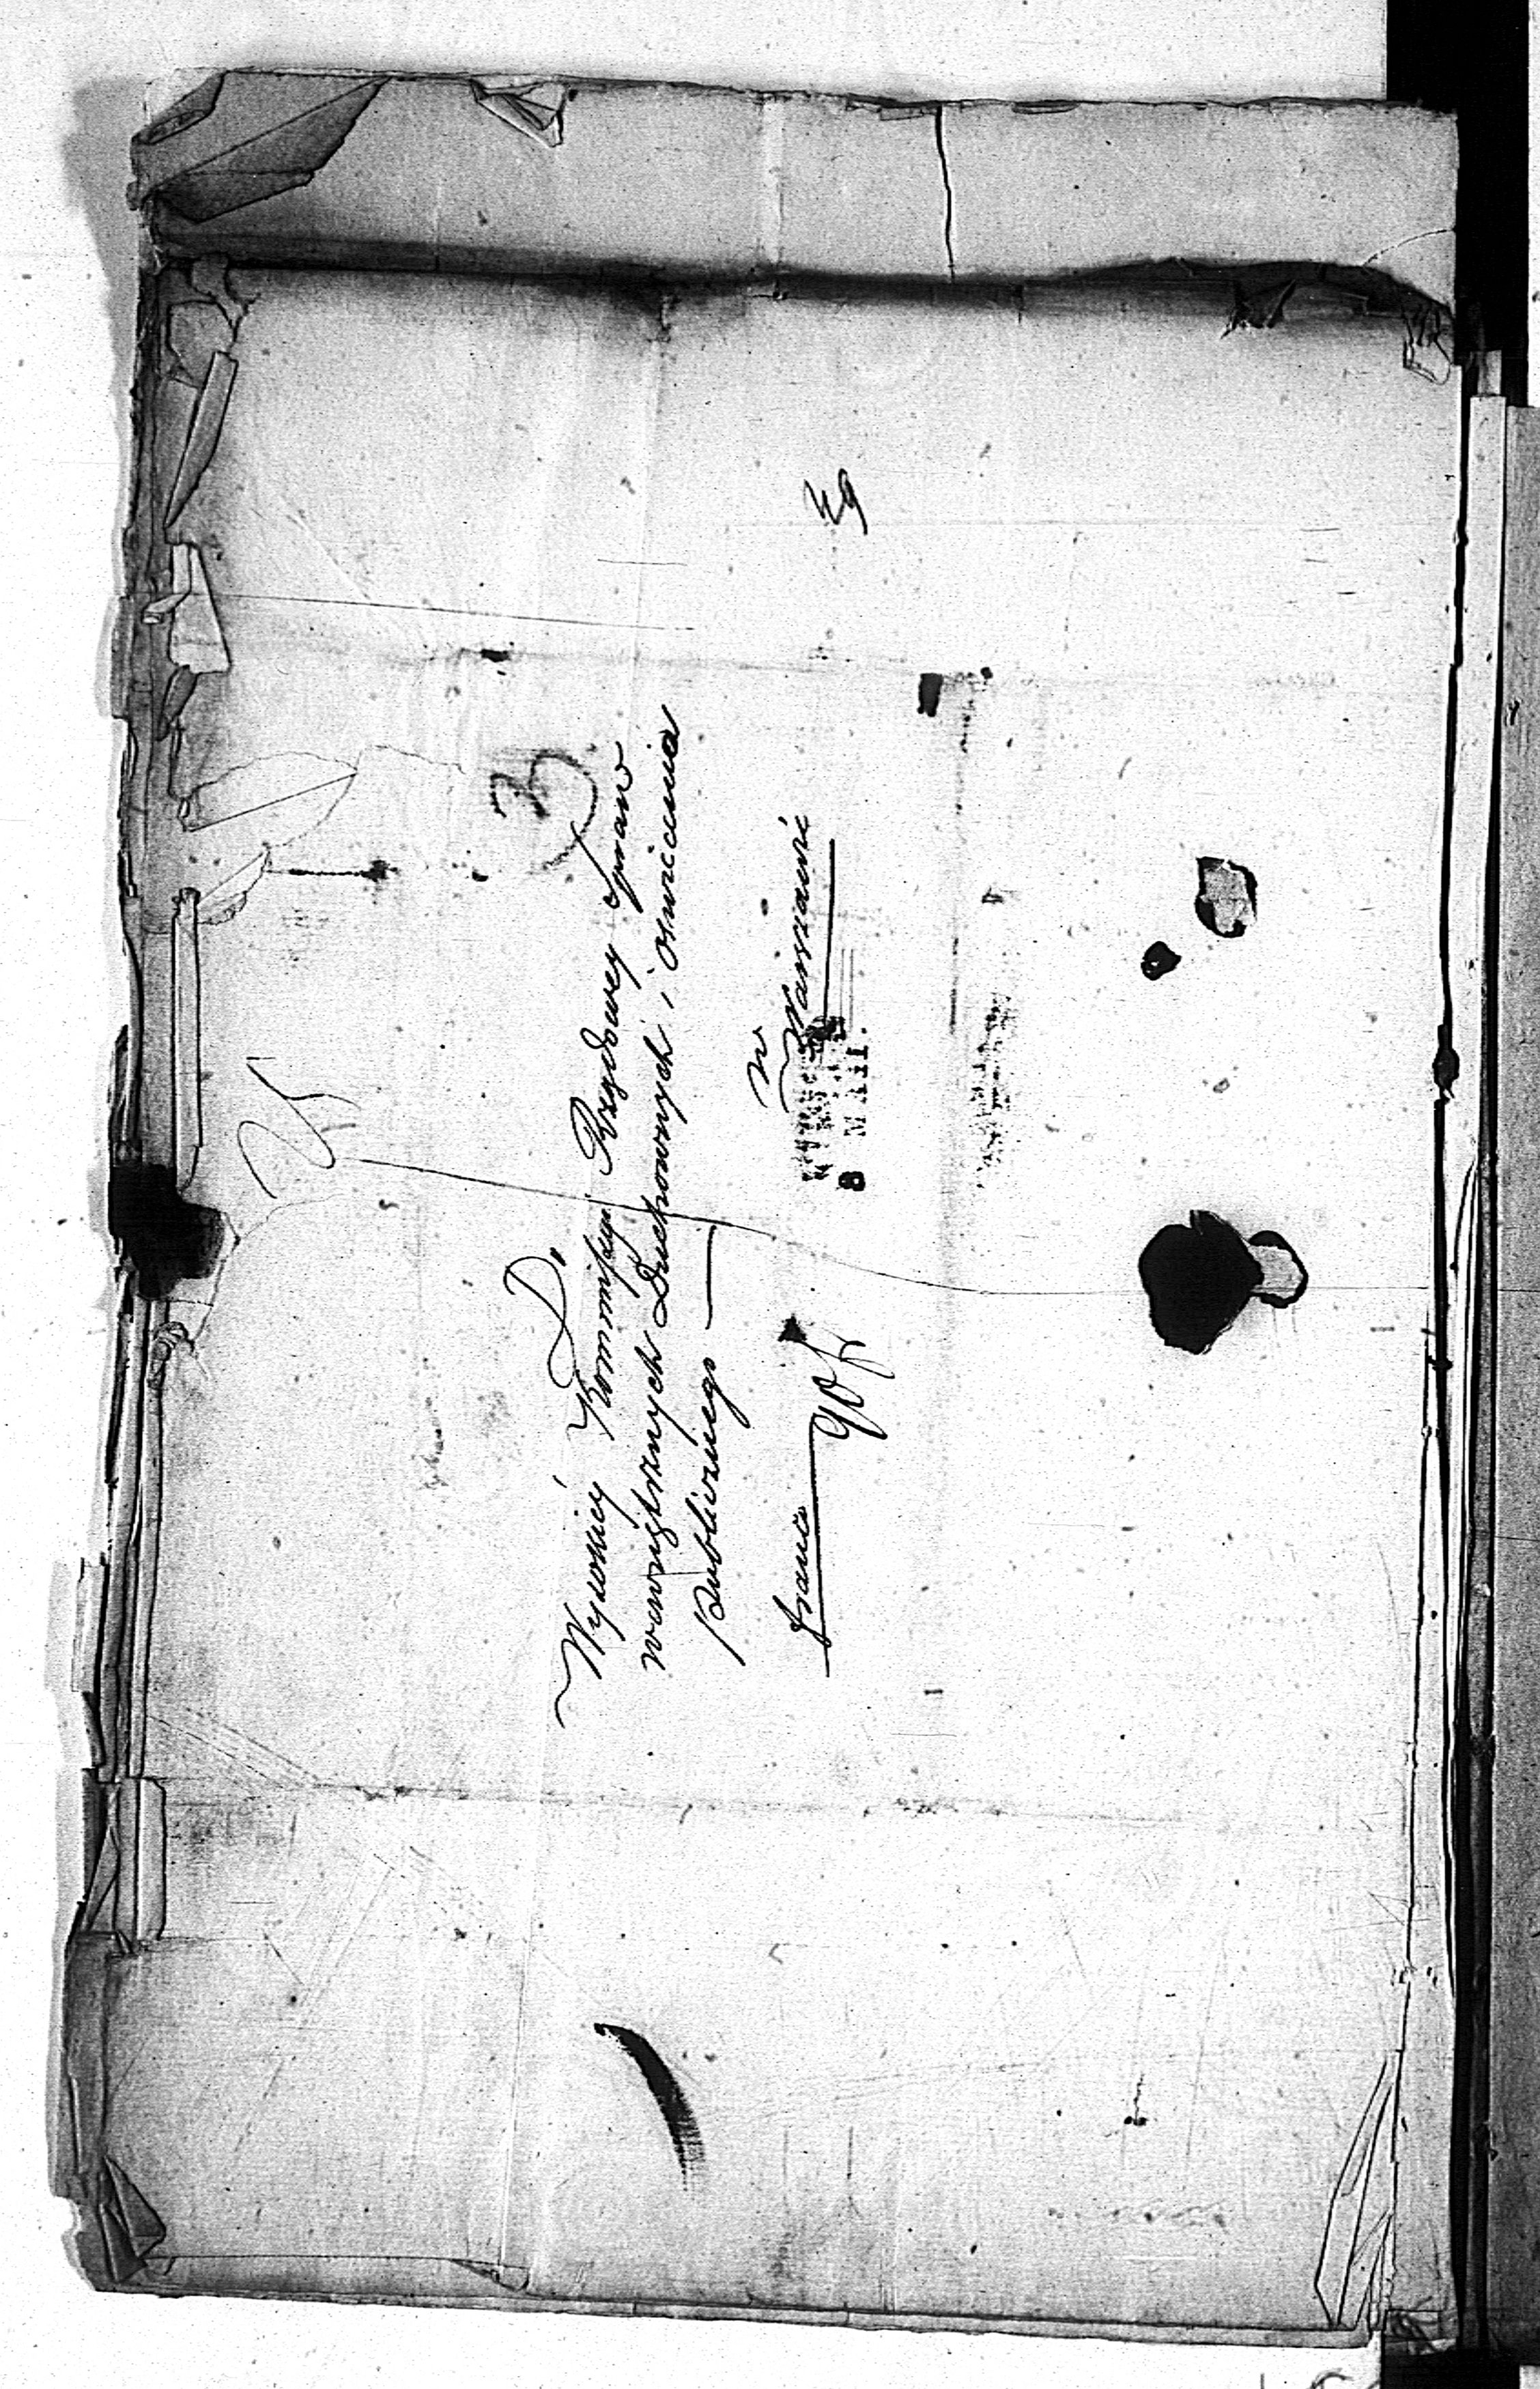 3
Do
Wysokiéy Kommissyi Rządowey Spraw
wewnętrznych Duchownych i Oświecenia
publicznego
w
Warszawie
franco
8 MAII.